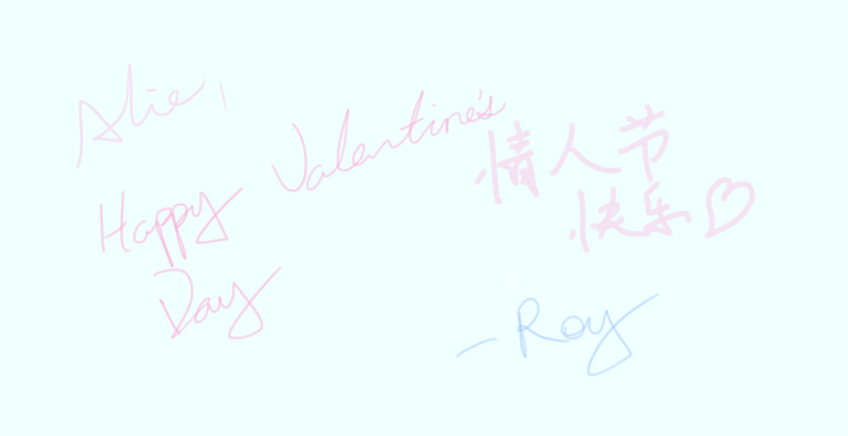 Alie,
Happy Valentine's
Day
情人节
快乐♡
-Roy